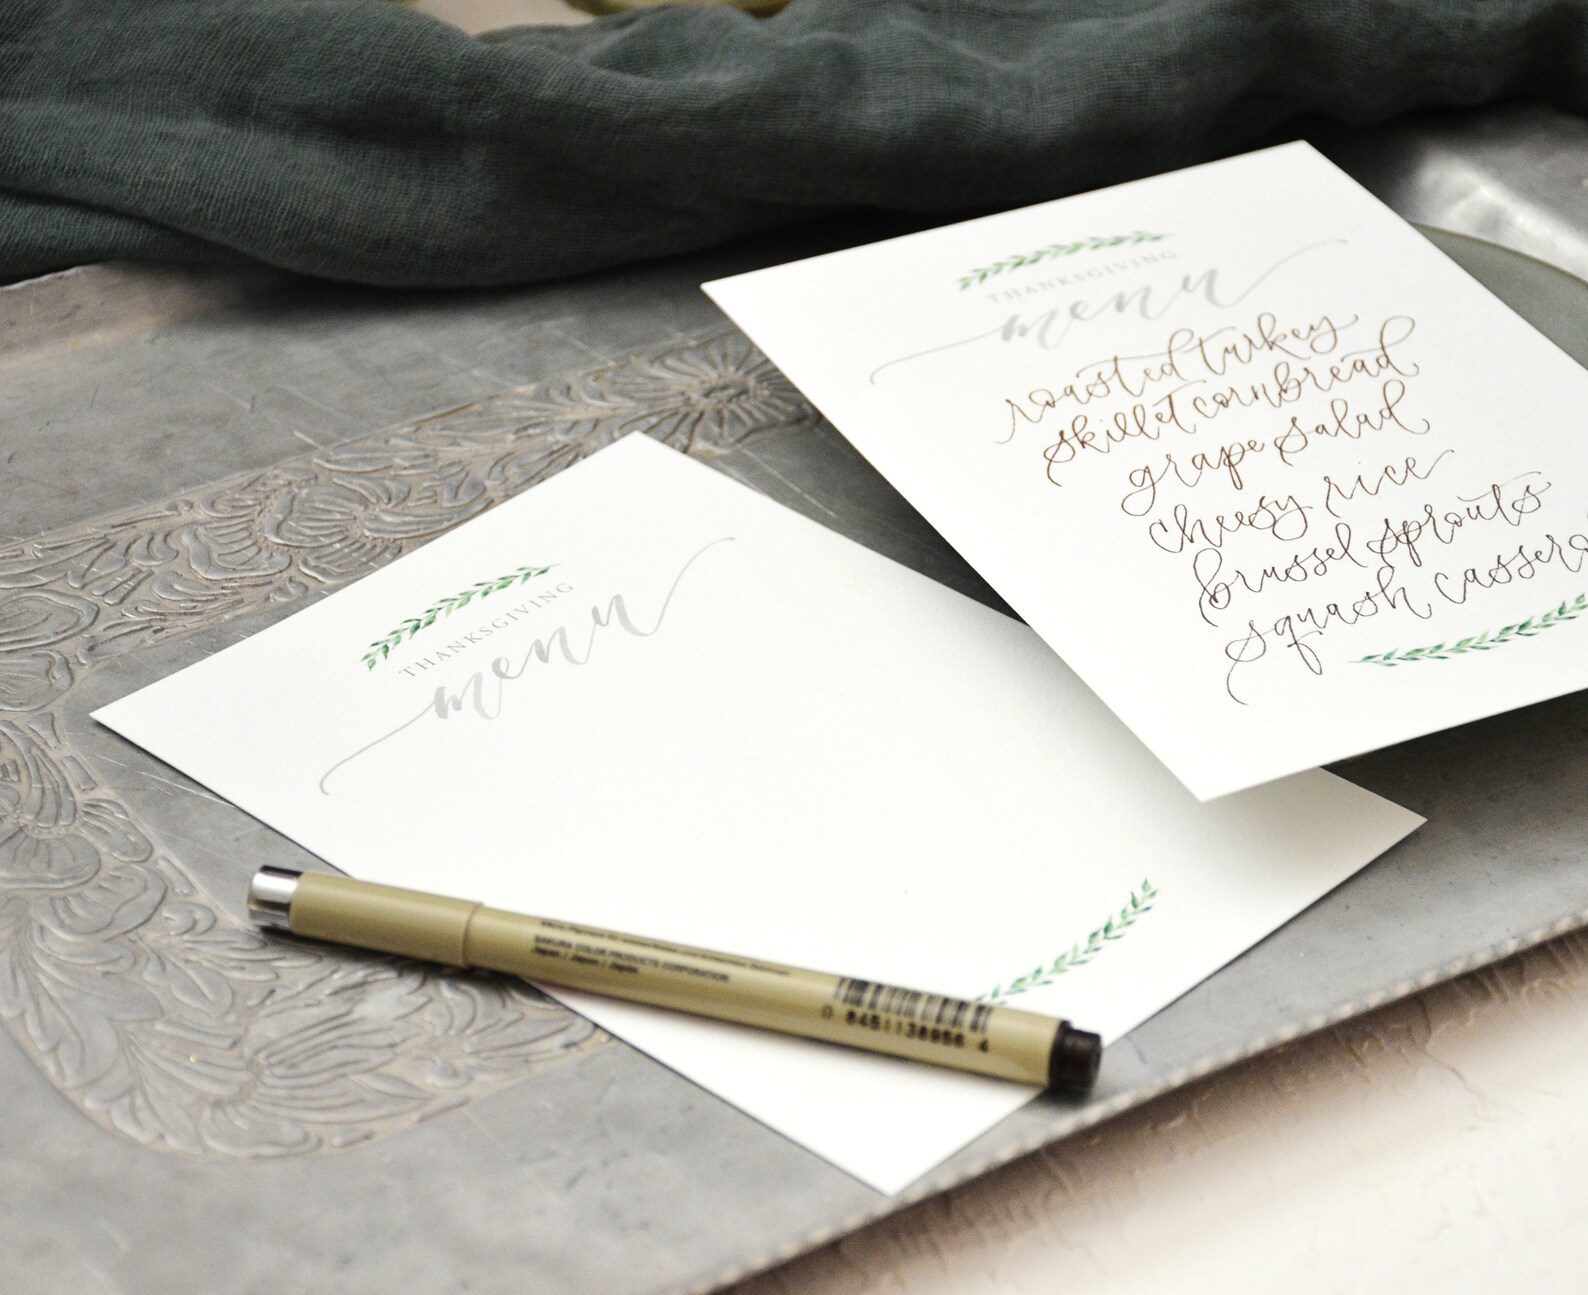 THANKSGIVING
menu
roasted turkey
skillet cornbread
grape salad
cheesy rice
brussel sprouts
squash cassero
THANKSGIVING
menu
SAKURA COLOR PRODUCTS CORPORATION
Japan / Japon / Japón
0 84511 38956 4